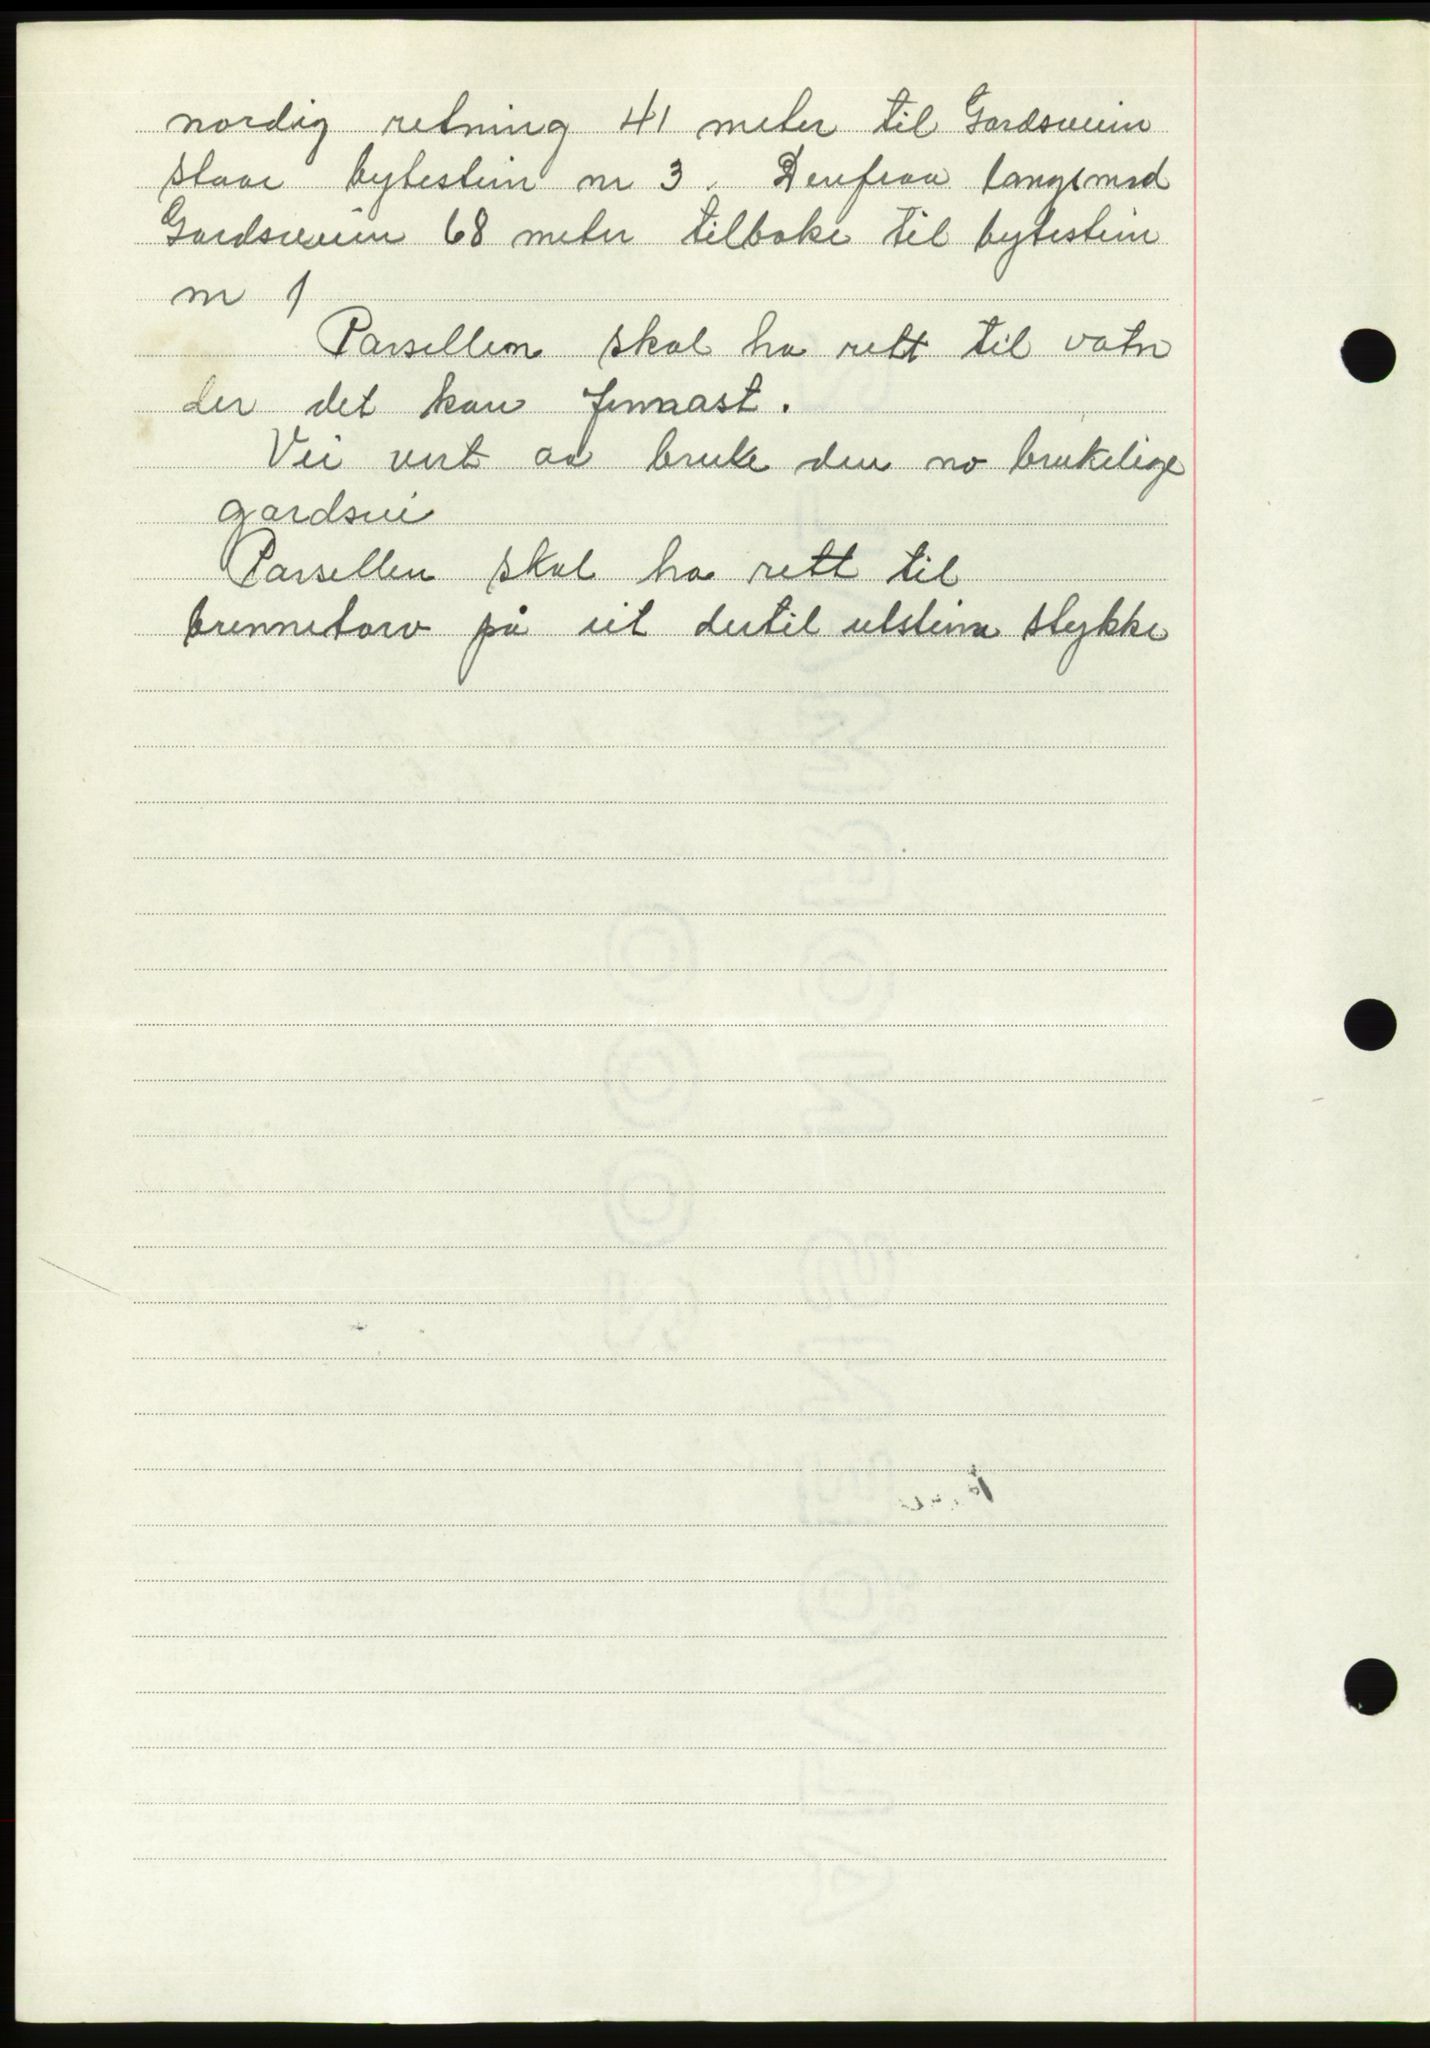 nordig retning 41 meter til Gardsveien
staar bytestein nr 3. Derifraa langsmed
Gardsveien 68 meter tilbake til bytestein
nr 1
Parsellen skal ha rett til vatn
der det kan finnast.
Vei vert aa bruke den no brukelige
gardsvei
Parsellen skal ha rett til
brennetorv på eit dertil utstein stykke